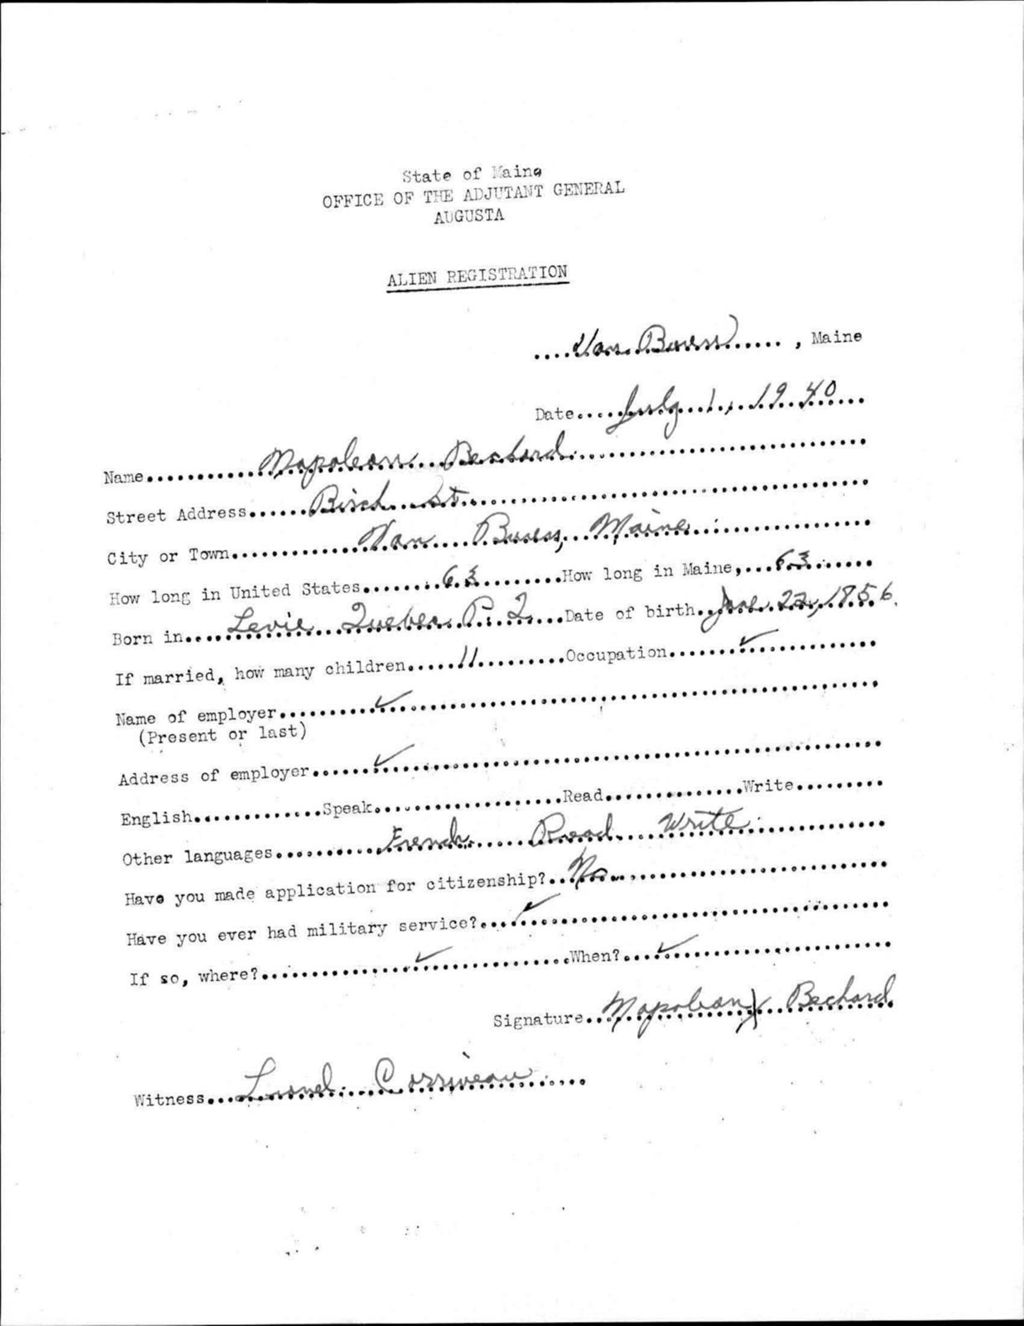 State of Maine
OFFICE OF THE ADJUTANT GENERAL
AUGUSTA
ALIEN REGISTRATION
Van Buren, Maine
Date July 1, 1940
Name Napoleon Bechard
Street Address Birch St
City or Town Van Buren, Maine
How long in United States 63 How long in Maine, 63
Born in Levie Quebec P. Q. Date of birth 22, 1856.
If married, how many children 11 Occupation ✓
Name of employer ✓
(Present or last)
Address of employer ✓
English Speak Read Write
Other languages French Read Write
Have you made application for citizenship? No
Have you ever had military service? ✓
If so, where? ✓ When? ✓
Signature Napoleon x Bechard
Witness Lionel Corriveau